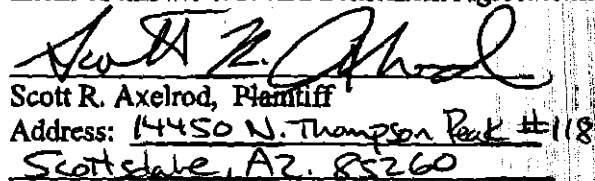 Scott R. Axelrod
Scott R. Axelrod, Plaintiff
Address: 14450 N. Thompson Peak #118
Scottsdale, AZ. 85260